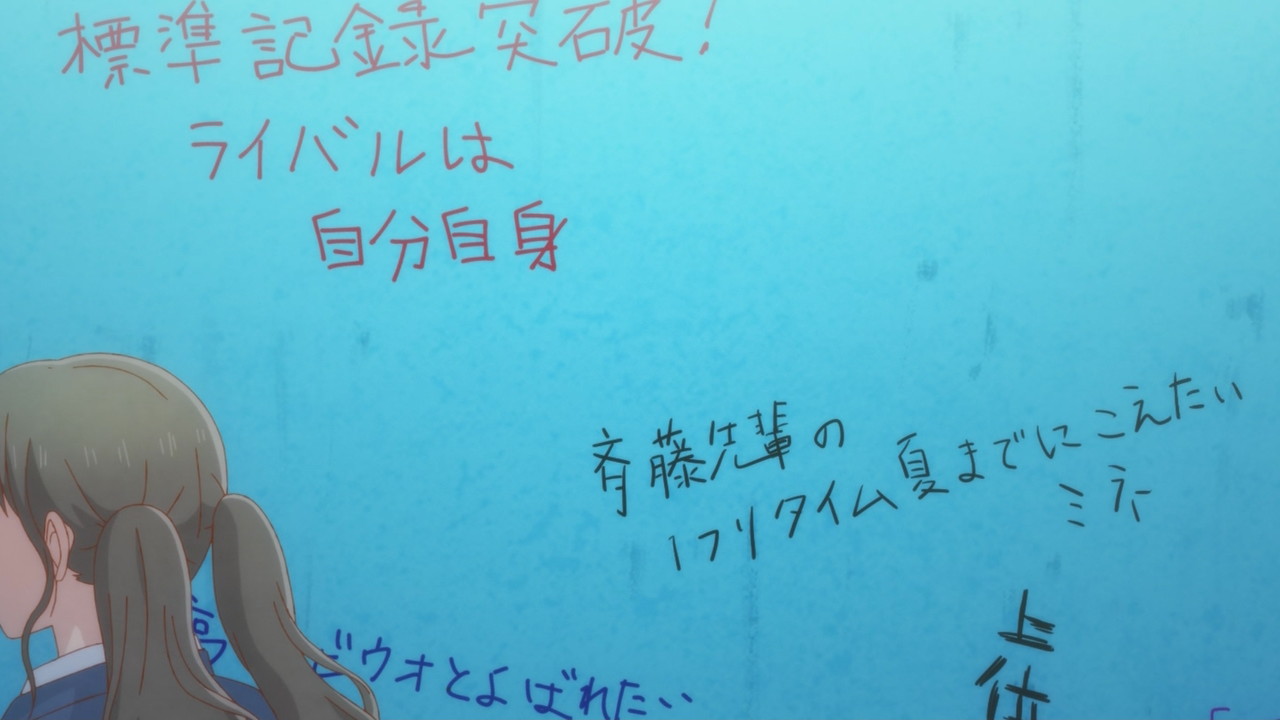 標準記録突破!
ライバルは
自分自身
斉藤先輩の
1フリタイム夏までにこえたい
ミネ
高
ビウオとよばれたい
上
体